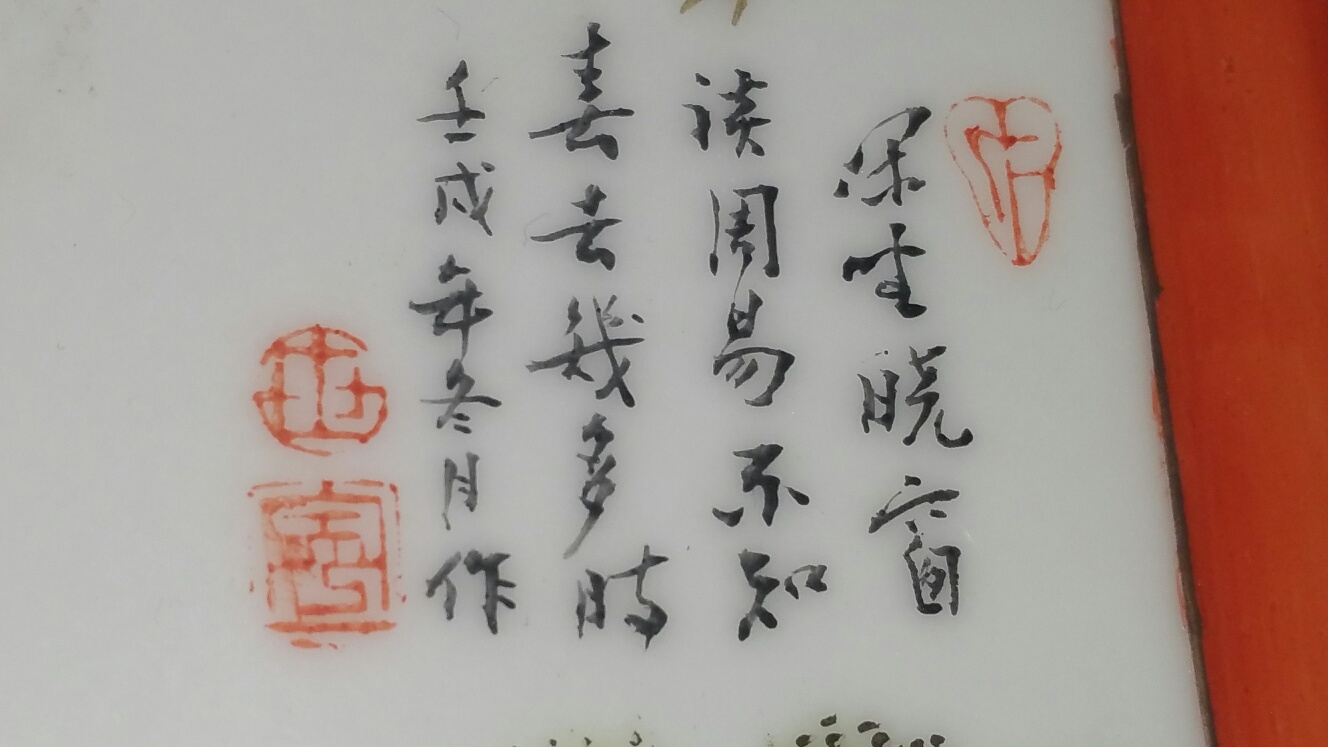 闲坐晓窗
读周易不知
春去幾多时
壬戌年冬月作